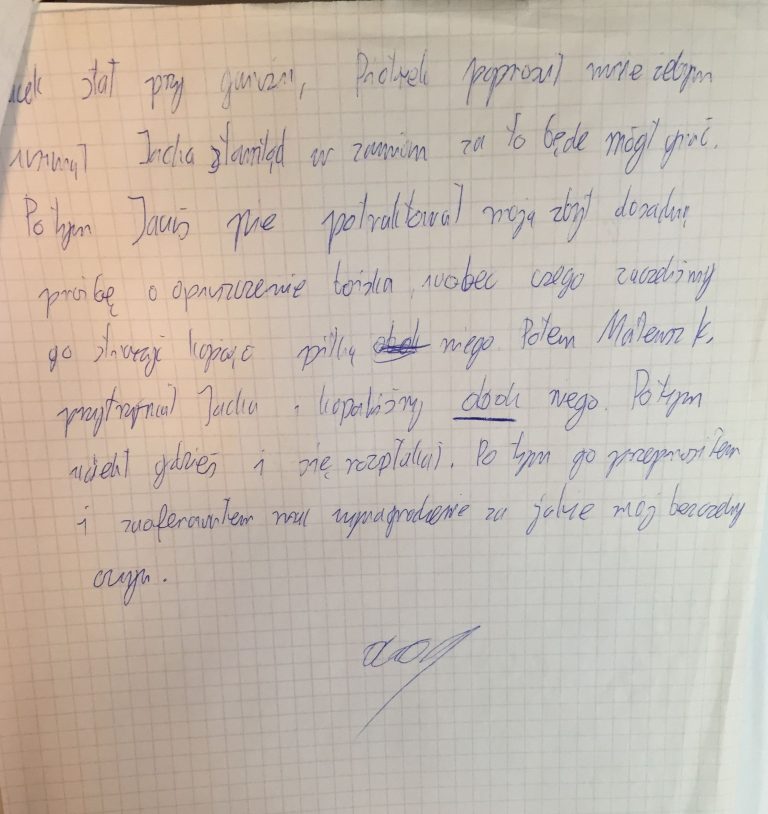 stał przy Piotrek poprosił mnie żebym
Jacka stamtąd w zamian za to będe mógł grać.
Po tym Jacuś nie potraktował moją zbyt dosadną
prośbę o opuszczenie boiska, wobec czego zaczeliśmy
go straszyć kopiąc piłką obok niego. Potem Mateusz K.
przytrzymał Jacka i kopaliśmy obok niego. Po tym
uciekł gdzieś i się rozpłakał. Po tym go przeprosiłem
i zaoferowałem mu wynagrodzenie za jakże mój bezczelny
czyn.